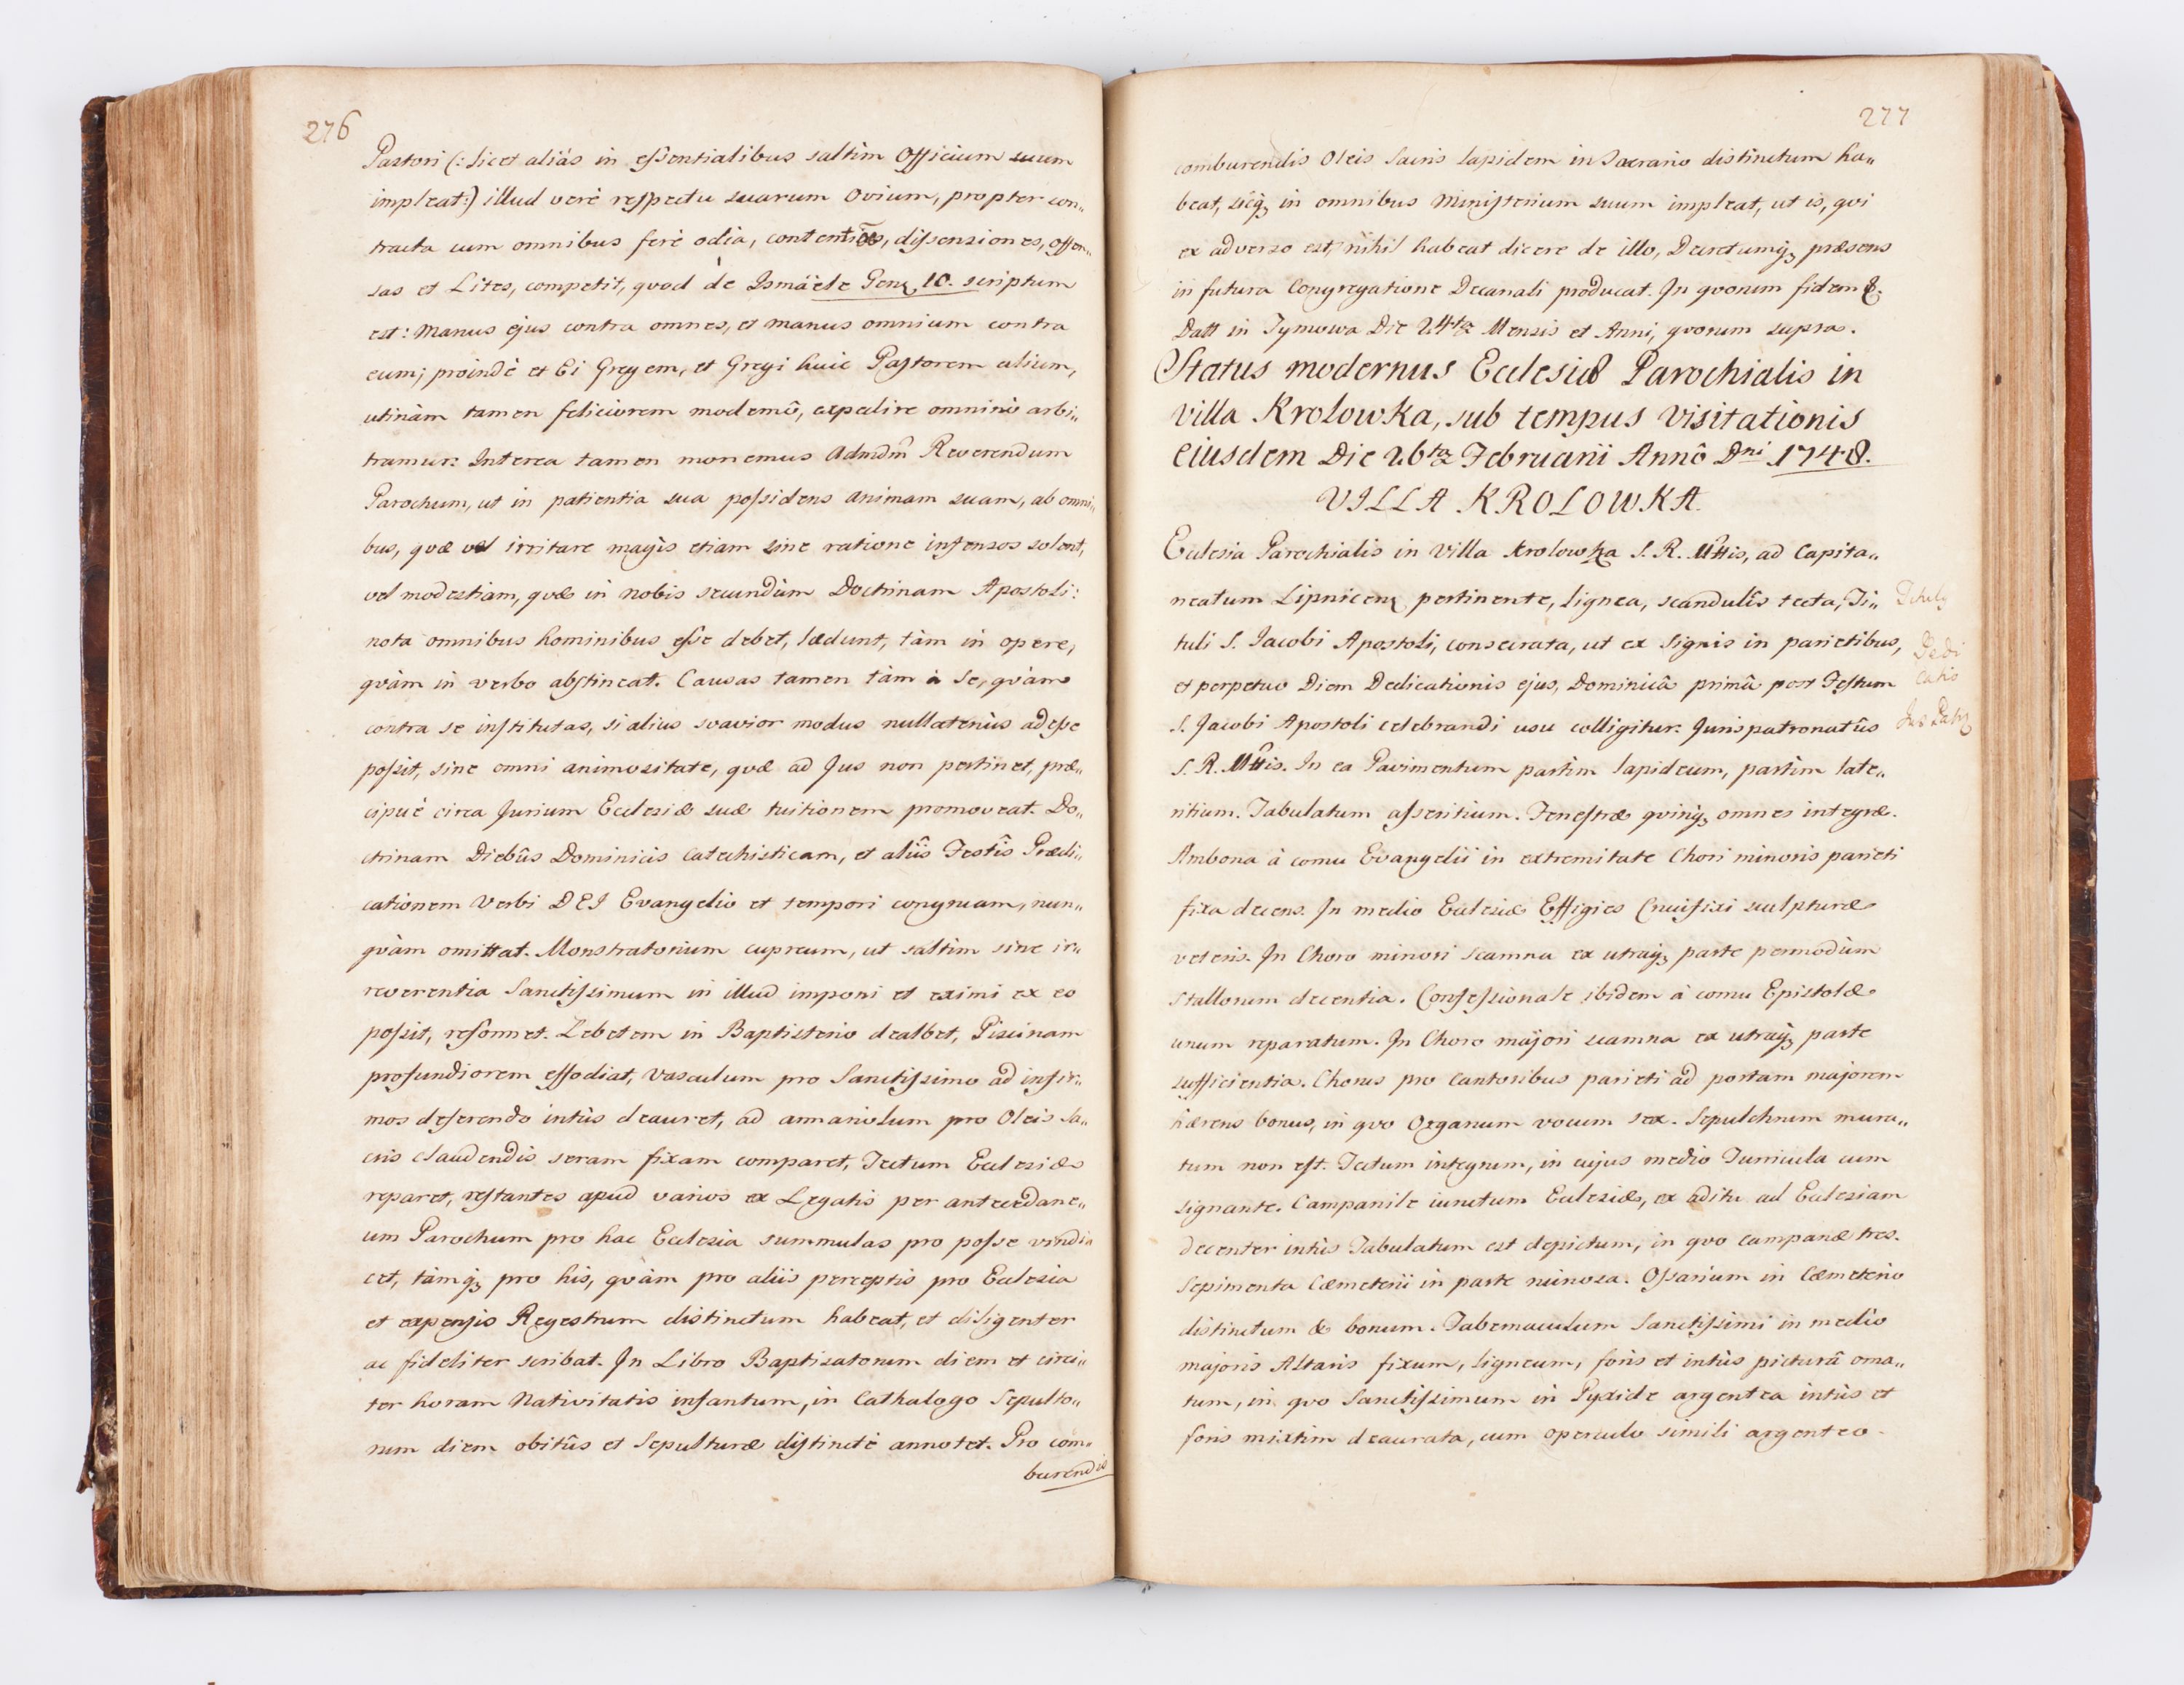 276
Pastori (: licet aliàs in essentialibus saltìm Officium suum
impleat:) illud verè respectu suarum Ovium, propter con„
tracta cum omnibus ferè odia, contentiões, dissensiones, offen„
sas et Lites, competit, quod de Ismäele Genȝ. 10. scriptum
est: Manus ejus contra omnes, et manus omnium contra
eum; proindè et Ei Gregem, et Gregi huic Pastorem alium,
utinàm tamen feliciorem modernô, expedire omninò arbi„
tramur: Interea tamen monemus Admdm̃ Reverendum
Parochum, ut in patientia sua possidens animam suam, ab omni„
bus, quæ vel irritare magìs etiam sine ratione infensos solent,
vel modestiam, quæ in nobis secundùm Doctrinam Apostoli:
nota omnibus hominibus esse debet, lædunt, tàm in opere,
quàm in verbo abstineat. Causas tamen tàm à se, quàm
contra se institutas, si alius suavior modus nullatenùs adesse
possit, sine omni animositate, quæ ad Jus non pertinet, præ„
cipuè circa Jurium Ecclesiæ suæ tuitionem promoveat. Do„
ctrinam Diebûs Dominicis catechisticam, et aliîs Festîs Prædi„
cationem Verbi DEI Evangelio et tempori congruam, nun„
quàm omittat. Monstratorium cupreum, ut saltìm sine ir„
reverentia Sanctissimum in illud imponi et eximi ex eo
possit, reformet. Lebetem in Baptisterio dealbet, Piscinam
profundiorem effodiat, Vasculum pro Sanctissimo ad infir„
mos deferendo intùs deauret, ad armariolum pro Oleis Sa„
cris claudendis seram fixam comparet, Tectum Ecclesiæ
reparet, restantes apud varios ex Legatis per antecedane„
um Parochum pro hac Ecclesia summulas pro posse vindi„
cet, tàmqȝ pro his, quàm pro aliis perceptis pro Ecclesia
et expensis Regestrum distinctum habeat, et diligenter
ac fideliter scribat. In Libro Baptisatorum diem et circi„
ter horam Nativitatis infantum, in Cathalogo Sepulto„
rum diem obitûs et Sepulturæ distinctè annotet. Pro com„
burendis
277
comburendis Oleis Sacris lapidem in Sacrario distinctum ha„
beat, sicqȝ in omnibus Ministerium suum impleat, ut is, qui
ex adverso est, nihil habeat dicere de illo, Decretumqȝ præsens
in futura Congregatione Decanali producat. In quorum fidem &.
Datt in Tymowa Die 24ta Mensis et Anni, quorum supra.
Status modernus Ecclesiæ Parochialis in
villa Krolowka, sub tempus Visitationis
eiusdem Die 26ta Februarii Annô Dni 1748.
VILLA KROLOWKA.
Ecclesia Parochialis in Villa Krolowka S. R. Mttis, ad Capita„
neatum Lipnicenȝ pertinente, lignea, scandulîs tecta, Ti„
Tituly
tuli S. Jacobi Apostoli, consecrata, ut ex Signis in parietibus,
Dedi
et perpetuo Diem Dedicationis ejus, Dominicâ primâ post Festum
catio
S. Jacobi Apostoli celebrandi usu colligitur: Jurispatronatûs
Jus Patrȝ
S. R. Mttis. In ea Pavimentum partìm lapideum, partìm late„
ritium. Tabulatum asseritium. Fenestræ quinqȝ omnes integræ.
Ambona à cornu Evangelii in extremitate Chori minoris parieti
fixa decens. In medio Ecclesiæ Effigies Crucifixi sculpturæ
veteris. In Choro minori scamna ex utraqȝ parte permodùm
Stallorum decentia. Confessionale ibidem à cornu Epistolæ
unum reparatum. In Choro majori scamna ex utraqȝ parte
sufficientia. Chorus pro Cantoribus parieti ad portam majorem
hærens bonus, in quo Organum vocum sex. Sepulchrum mura„
tum non est. Tectum integrum, in cujus medio Turricula cum
signante. Campanile iunctum Ecclesiæ, ex aditu ad Ecclesiam
decenter intùs Tabulatum est depictum, in quo campanæ tres.
Sepimenta Cæmeterii in parte ruinosa. Ossarium in Cæmeterio
distinctum & bonum. Tabernaculum Sanctissimi in medio
majoris Altaris fixum, ligneum, foris et intùs picturâ orna„
tum, in quo Sanctissimum in Pyxide argentea intùs et
foris mixtim deaurata, cum operculo simili argenteo.